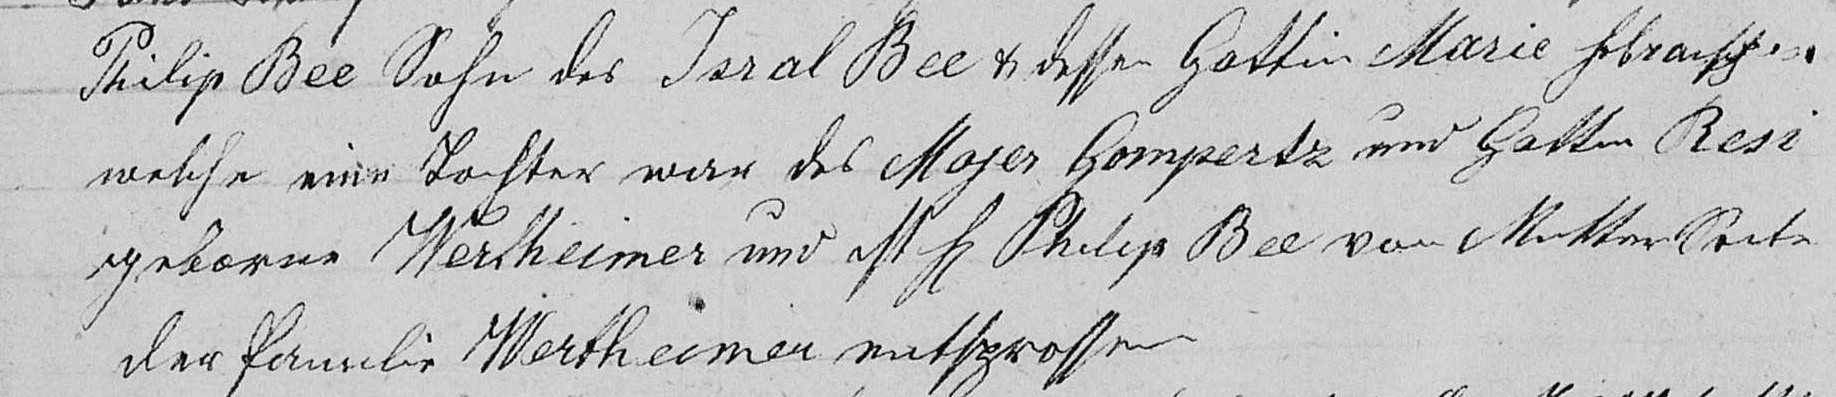 Philip Bee Sohn des Isral Bee & dessen Gattin Marie
welche eine Tochter war des Majer Gompertz und Gattin Resi
geborne Wertheimer und ist H Philip Bee von Mutter Seite
der Familie Wertheimer entsprossen